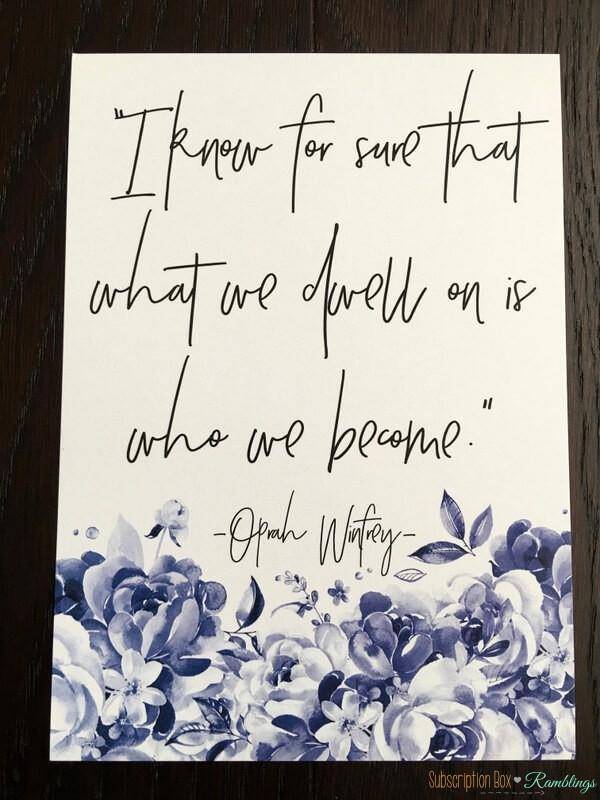 "I know for sure that
what we dwell on is
who we become."
-Oprah Winfrey-
Subscription Box ♥ Ramblings